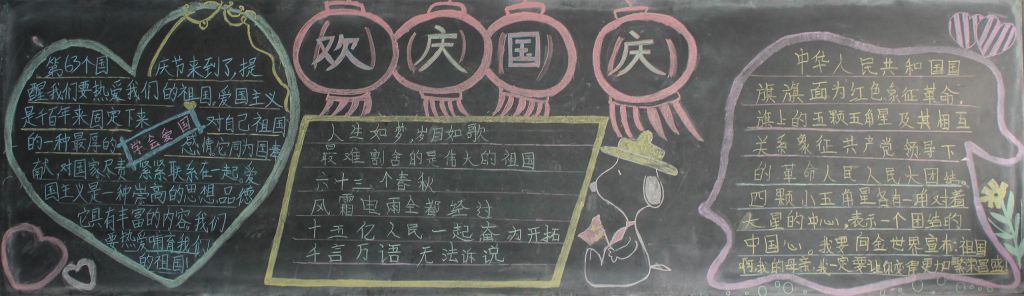 欢庆国庆
第63个国 庆节来到了,提
醒我们要热爱我们的祖国,爱国主义
是千百年来固定下来 对自己祖国
的一种最厚的
学会爱国
献,对国家尽责 紧紧联系在一起,爱
国主义是一种崇高的思想品德
它具有丰富的内容,我们
要热爱哺育我们
的祖国
人生如梦,岁月如歌
最难割舍的是伟大的祖国
六十三个春秋
风霜虫雨全都经过
十五亿人民一起奋力开拓
千言万语无法诉说
中华人民共和国国
旗旗面为红色象征革命,
旗上的五颗五角星及其相互
关系象征共产党领导下
的革命人民人民大团结,
四颗小五角星各有一角对着
大星的中心,表示一个团结的
中国心,我要向全世界宣布:祖国
啊我的母亲,我一定要让你变得更加繁荣富强